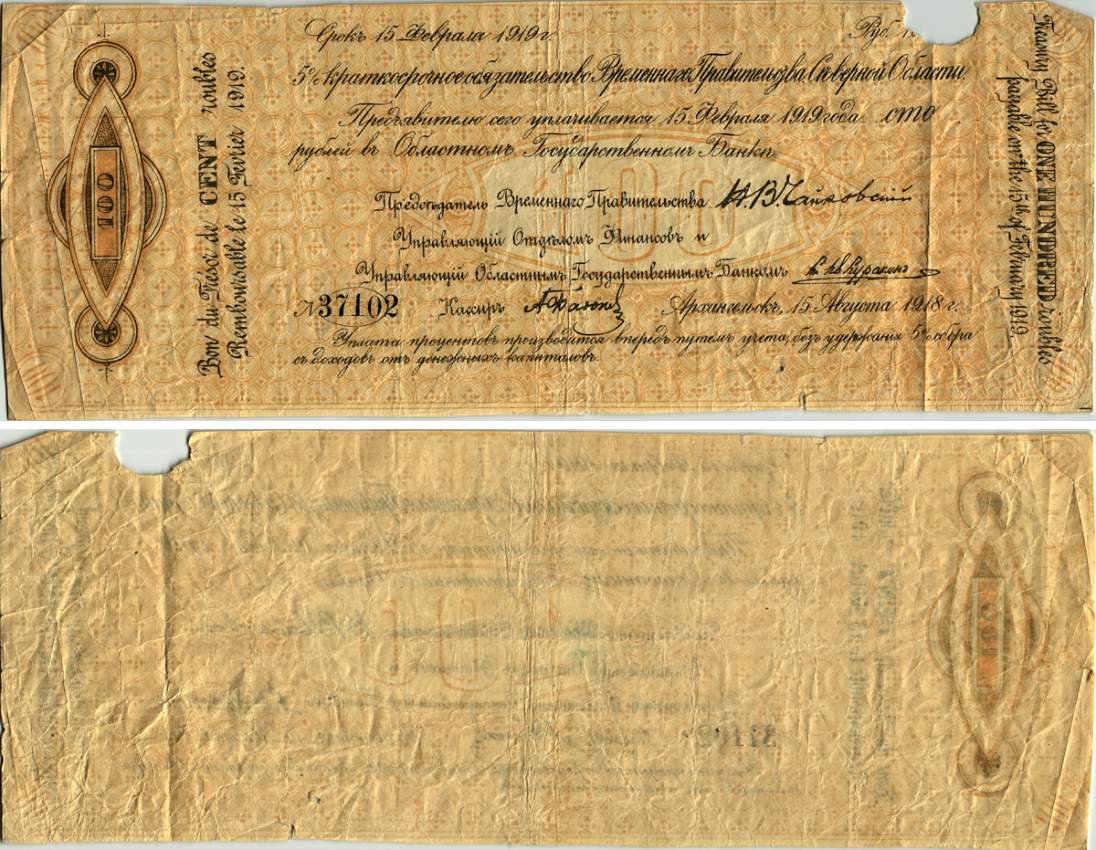 100
Bon du Trésor de CENT roubles
Remboursable le 15 Février 1919.
Срокъ 15 Февраля 1919 г.
Руб.
5% краткосрочное обязательство Временнаго Правительства Сѣверной Области
Предъявителю сего уплачивается 15 Февраля 1919 года сто
рублей въ Областномъ Государственномъ Банкѣ.
100
Предсѣдатель Временнаго Правительства Н. В. Чайковскій
Управляющій Отдѣломъ Финансовъ и
Управляющій Областнымъ Государственнымъ Банкомъ Куракинъ
№ 37102 Кассиръ Архангельскъ, 15 Августа 1918 г.
Уплата процентовъ производится впередъ путемъ учета, безъ удержанія 5% сбора
съ доходовъ отъ денежныхъ капиталовъ.
Treasury Bill for ONE HUNDRED roubles
payable on the 15th of February 1919.